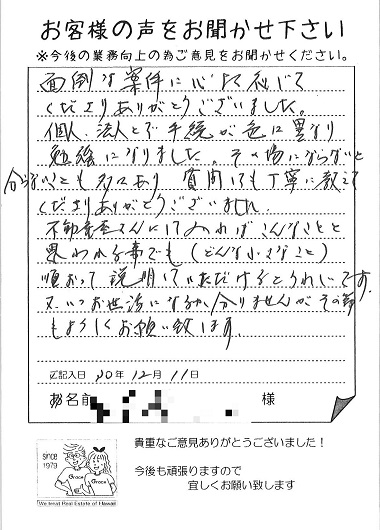 お客様の声をお聞かせ下さい
※今後の業務向上の為ご意見をお聞かせください。
面倒な案件に心よく応じて
くださりありがとうございました。
個人、法人とで手続が色々異なり
勉強になりました。その場にならないと
分らないことも多々あり 質問しても丁寧に教えて
くださりありがとうございました
不動産屋さんにしてみればこんなことと
思われる事でも(どんな小さなこと)
順おって説明していただけるとうれしいです。
又いつお世話になるか分りませんがその節
もよろしくお願い致します。
ご記入日 30年 12月 11日
お名前 様
since
1979
Grace
Grace
We treat Real Estate of Hawaii
貴重なご意見ありがとうございました!
今後も頑張りますので
宜しくお願い致します